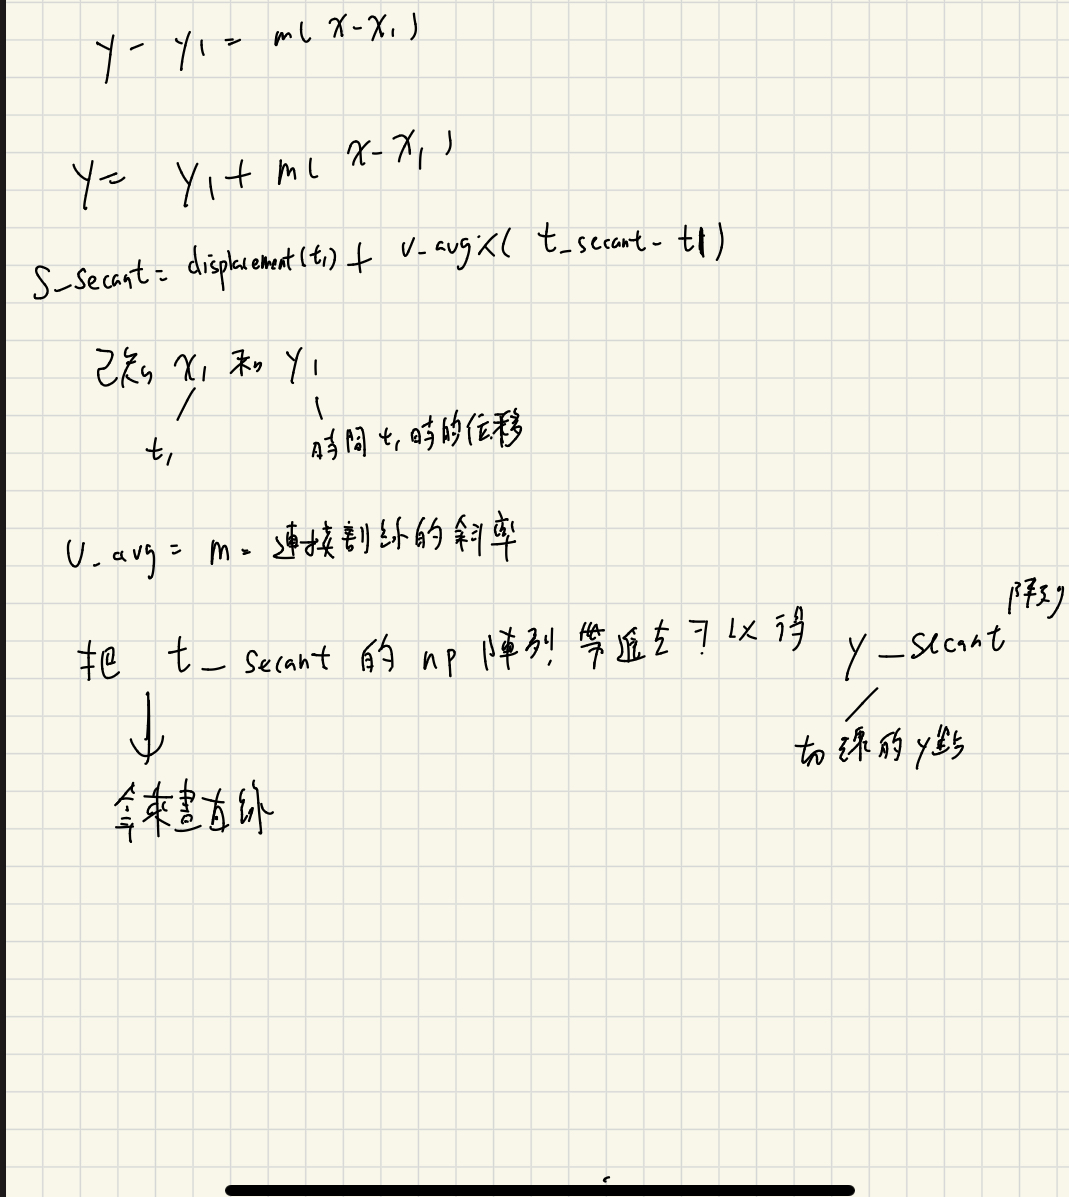 y - y1 = m( x-x1 )
y= y1 + m( x-x1 )
S_secant = displacement(t1) + v_avg×( t_secant - t1)
已知 x1 和 y1
t1 時間 t1 時的位移
v_avg = m = 連接割線的斜率
把 t_secant 的 np 陣列 帶進去可以得 y_secant 陣列
切線的y點
拿來畫直線